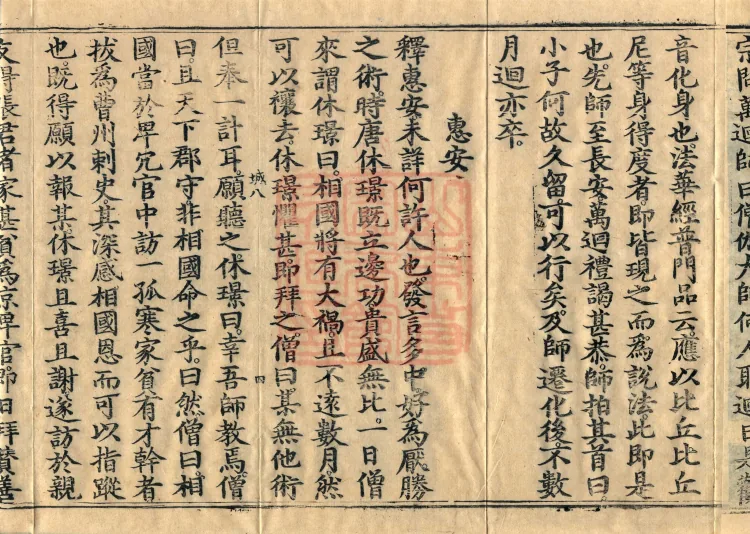 宗問萬迴師曰僧伽大師何人耶迴曰是觀
音化身也法華經普門品云應以比丘比丘
尼等身得度者即皆現之而為說法此即是
也先師至長安萬迴禮謁甚恭師拍其首曰
小子何故久留可以行矣及師遷化後不數
月迴亦卒
惠安
釋惠安未詳何許人也發言多中好為厭勝
之術時唐休璟既立邊功貴盛無比一日僧
來謂休璟曰相國將有大禍且不遠數月然
可以禳去休璟懼甚即拜之僧曰某無他術
城八 四
但奉一計耳願聽之休璟曰幸吾師教焉僧
曰且天下郡守非相國命之乎曰然僧曰相
國當於卑冗官中訪一孤寒家貧有才幹者
拔為曹州刺史其深感相國恩而可以指蹤
也既得願以報某休璟且喜且謝遂訪於親
友得張君者家甚貧為京卑官即日拜贊善